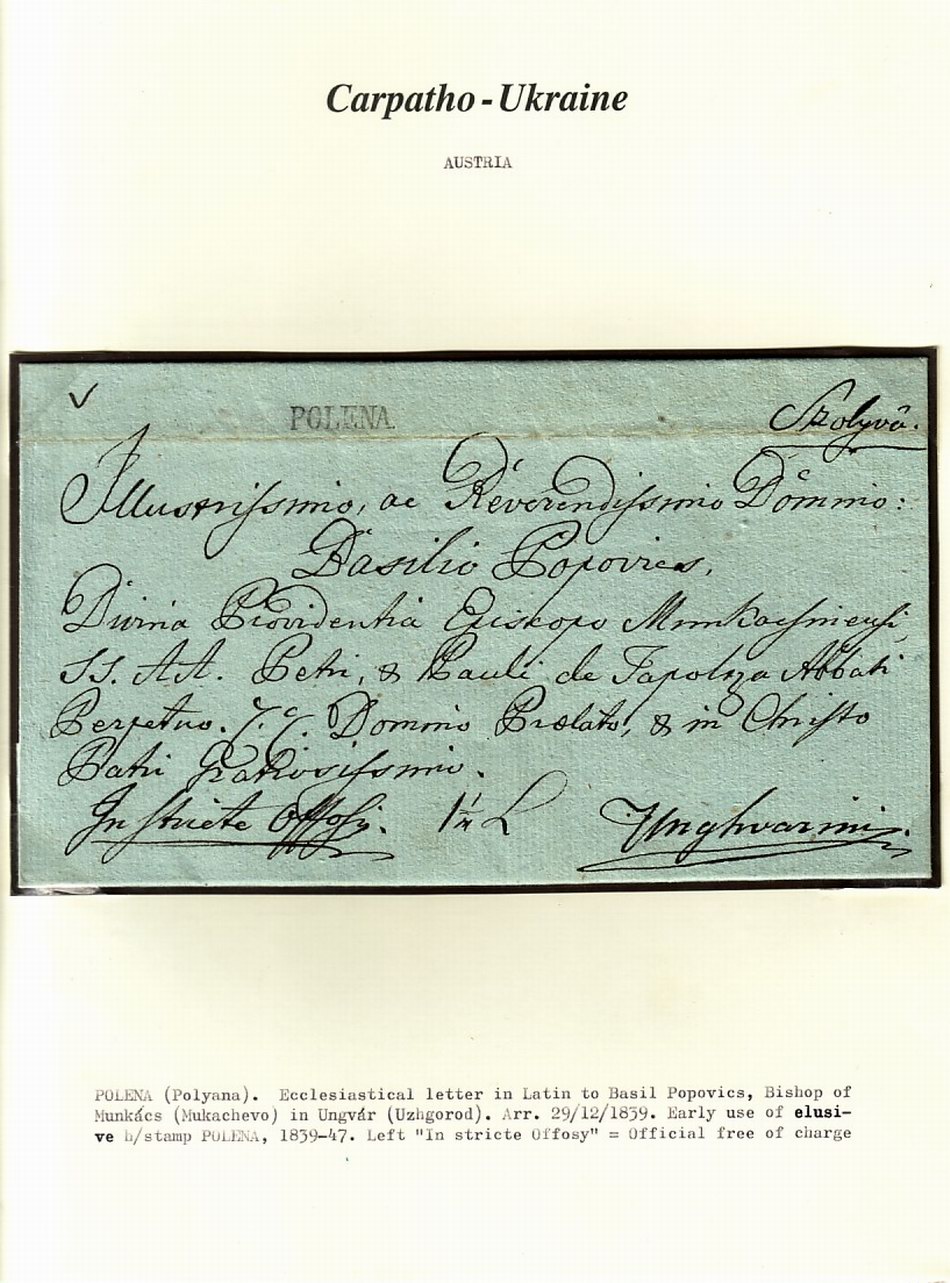 Carpatho-Ukraine
AUSTRIA
POLENA
Szolyvâ.
Illustrissimo, ac Reverendissimo Domino:
Basilio Popovics,
Divina Providentia Episcopo Munkacsiensi
SS. AA. Petri, & Pauli de Tapolcza Abbati
Perpetuo. Domino Prælato, & in Christo
Patri Gratiosissimo.
In stricte Offosy. Unghvarini.
POLENA (Polyana). Ecclesiastical letter in Latin to Basil Popovics, Bishop of
Munkács (Mukachevo) in Ungvár (Uzhgorod). Arr. 29/12/1839. Early use of elusi-
ve h/stamp POLENA, 1839-47. Left "In stricte Offosy" = Official free of charge